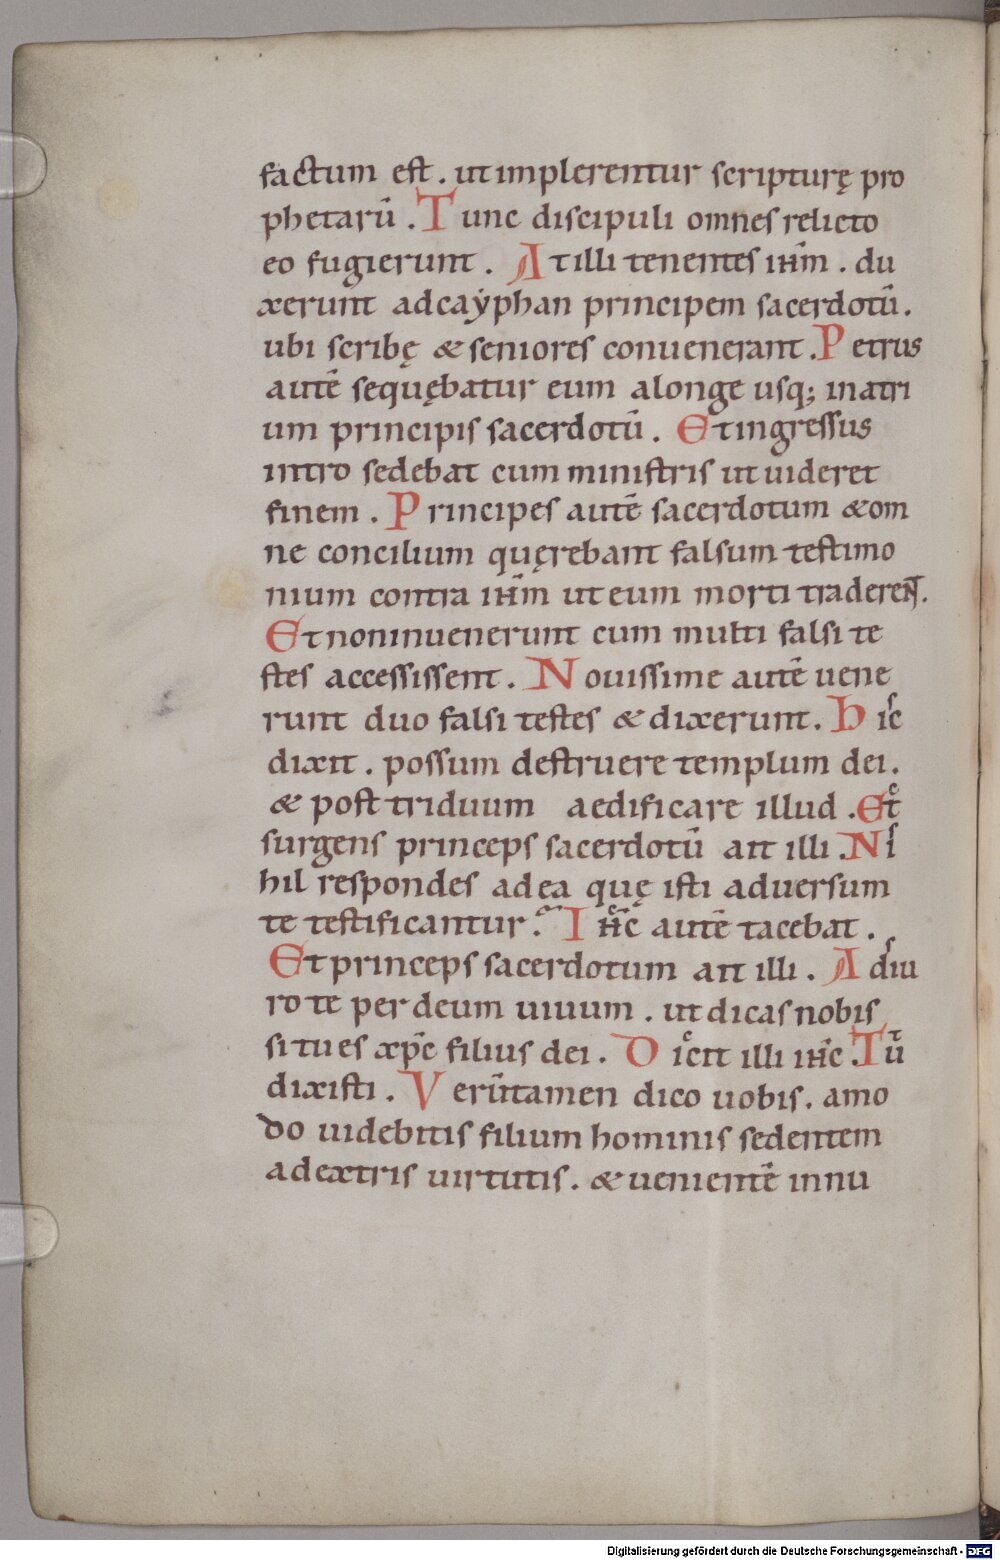 factum est . ut implerentur scripturę pro
phetarū . Tunc discipuli omnes relicto
eo fugierunt . At illi tenentes ihm̄ . du
xerunt ad caẏphan principem sacerdotū .
ubi scribę & seniores conuenerant . Petrus
autē sequębatur eum alonge usq; in atri
um principis sacerdotū . Et ingressus
intro sedebat cum ministris ut uideret
finem . Principes autē sacerdotum & om
ne concilium quęrebant falsum testimo
nium contra ihm̄ ut eum morti traderent .
Et non inuenerunt cum multi falsi te
stes accessissent . Nouissime autē uene
runt duo falsi testes & dixerunt . hic
dixit . possum destruere templum dei .
& post triduum aedificare illud . Et
surgens princeps sacerdotū ait illi . Ni
hil respondes ad ea quę isti aduersum
te testificantur ? Ihc̄ autē tacebat .
Et princeps sacerdotum ait illi . Adiu
ro te per deum uiuum . ut dicas nobis
si tu es xp̄c filius dei . Dicit illi ihc̄ . Tū
dixisti . Verūtamen dico uobis . amo
do uidebitis filium hominis sedentem
a dextris uirtutis . & uenientē in nu
Digitalisierung gefördert durch die Deutsche Forschungsgemeinschaft - DFG